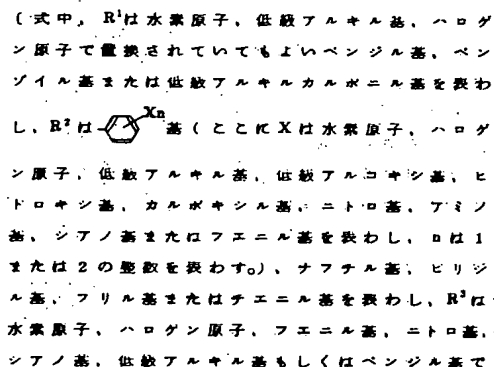 (式中、R¹は水素原子、低級アルキル基、ハロゲ
ン原子で置換されていてもよいベンジル基、ベン
ゾイル基または低級アルキルカルボニル基を表わ
し、R²は Xn 基(ここにXは水素原子、ハロゲ
ン原子、低級アルキル基、低級アルコキシ基、ヒ
ドロキシ基、カルボキシル基、ニトロ基、アミノ
基、シアノ基またはフエニル基を表わし、nは1
または2の整数を表わす。)、ナフチル基、ピリジ
ル基、フリル基またはチエニル基を表わし、R³は
水素原子、ハロゲン原子、フエニル基、ニトロ基、
シアノ基、低級アルキル基もしくはベンジル基で